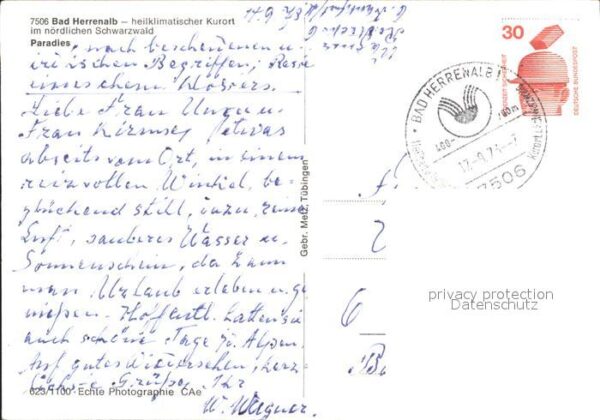 7506 Bad Herrenalb – heilklimatischer Kurort
im nördlichen Schwarzwald
Paradies, nach bescheidenen u.
irdischen Begriffen; Reste
eines ehem. Klosters.
Liebe Frau Unger u.
Frau Kirmse, etwas
abseits vom Ort, in einem
reizvollen Winkel, be-
glückend still, dazu reine
Luft, sauberes Wasser u.
Sonnenschein, da kann
man Urlaub erleben u. ge-
nießen. Hoffentl. hatten sie
auch schöne Tage i. Alpen.
Auf gutes Wiedersehen, herz-
lichste Grüße, Ihr
W. Wagner
623/1100 Echte Photographie CAe
Gebr. Metz, Tübingen
30
DEUTSCHE BUNDESPOST
BAD HERRENALB 1
7506
privacy protection
Datenschutz
6